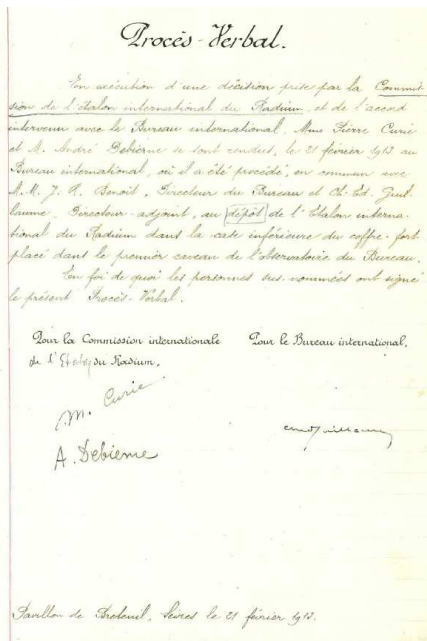 Procès-Verbal.
En exécution d'une décision prise par la Commis-
sion de l'étalon international du Radium, et de l'accord
intervenu avec le Bureau international, Mme Pierre Curie
et M. André Debierne se sont rendus, le 21 février 1913 au
Bureau international, où il a été procédé, en commun avec
M.M. J. R. Benoît, Directeur du Bureau et Ch. Ed. Guil-
laume, Directeur-adjoint, au dépôt de l'Etalon interna-
tional du Radium dans la case inférieure du coffre-fort
placé dans le premier caveau de l'observatoire du Bureau.
En foi de quoi les personnes sus-nommées ont signé
le présent Procès-Verbal.
Pour la Commission internationale Pour le Bureau international,
de l'Etalon du Radium,
M. Curie
A. Debierne
Pavillon de Breteuil, Sèvres le 21 février 1913.